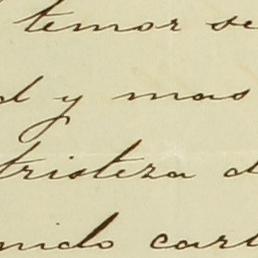 temor se
d y mas
tristeza d
nido cart